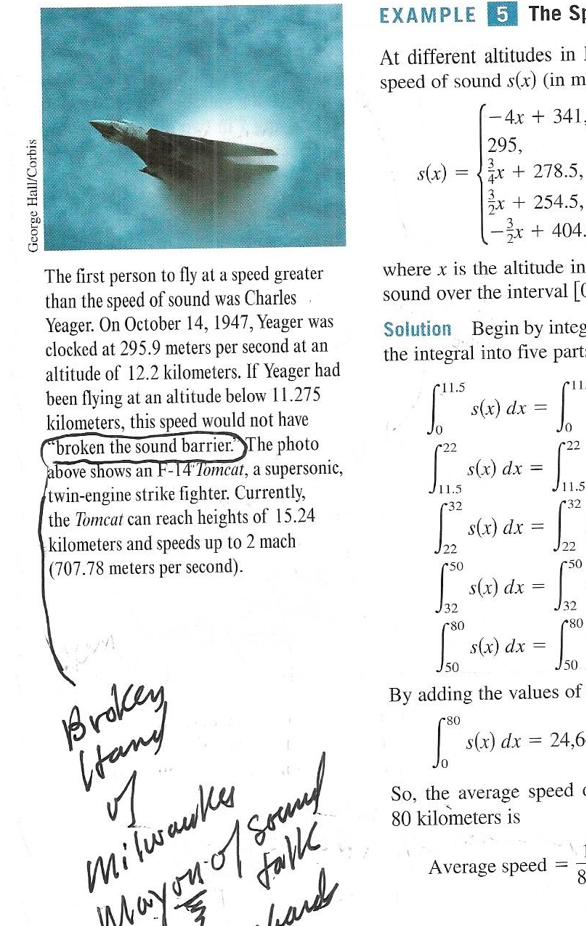 George Hall/Corbis
The first person to fly at a speed greater
than the speed of sound was Charles
Yeager. On October 14, 1947, Yeager was
clocked at 295.9 meters per second at an
altitude of 12.2 kilometers. If Yeager had
been flying at an altitude below 11.275
kilometers, this speed would not have
"broken the sound barrier." The photo
above shows an F-14 Tomcat, a supersonic,
twin-engine strike fighter. Currently,
the Tomcat can reach heights of 15.24
kilometers and speeds up to 2 mach
(707.78 meters per second).
Broken
Hand
of
Milwaukee
Mayor of sound
talk
EXAMPLE 5 The Sp
At different altitudes in
speed of sound s(x) (in m
s(x) = { -4x + 341,
295,
3/4x + 278.5,
3/2x + 254.5,
-3/2x + 404.
where x is the altitude in
sound over the interval [0
Solution Begin by integ
the integral into five part
∫₀^11.5 s(x) dx = ∫₀^11.
∫_11.5^22 s(x) dx = ∫_11.5^22
∫_22^32 s(x) dx = ∫_22^32
∫_32^50 s(x) dx = ∫_32^50
∫_50^80 s(x) dx = ∫_50^80
By adding the values of
∫₀^80 s(x) dx = 24,6
So, the average speed
80 kilometers is
Average speed = 1/8